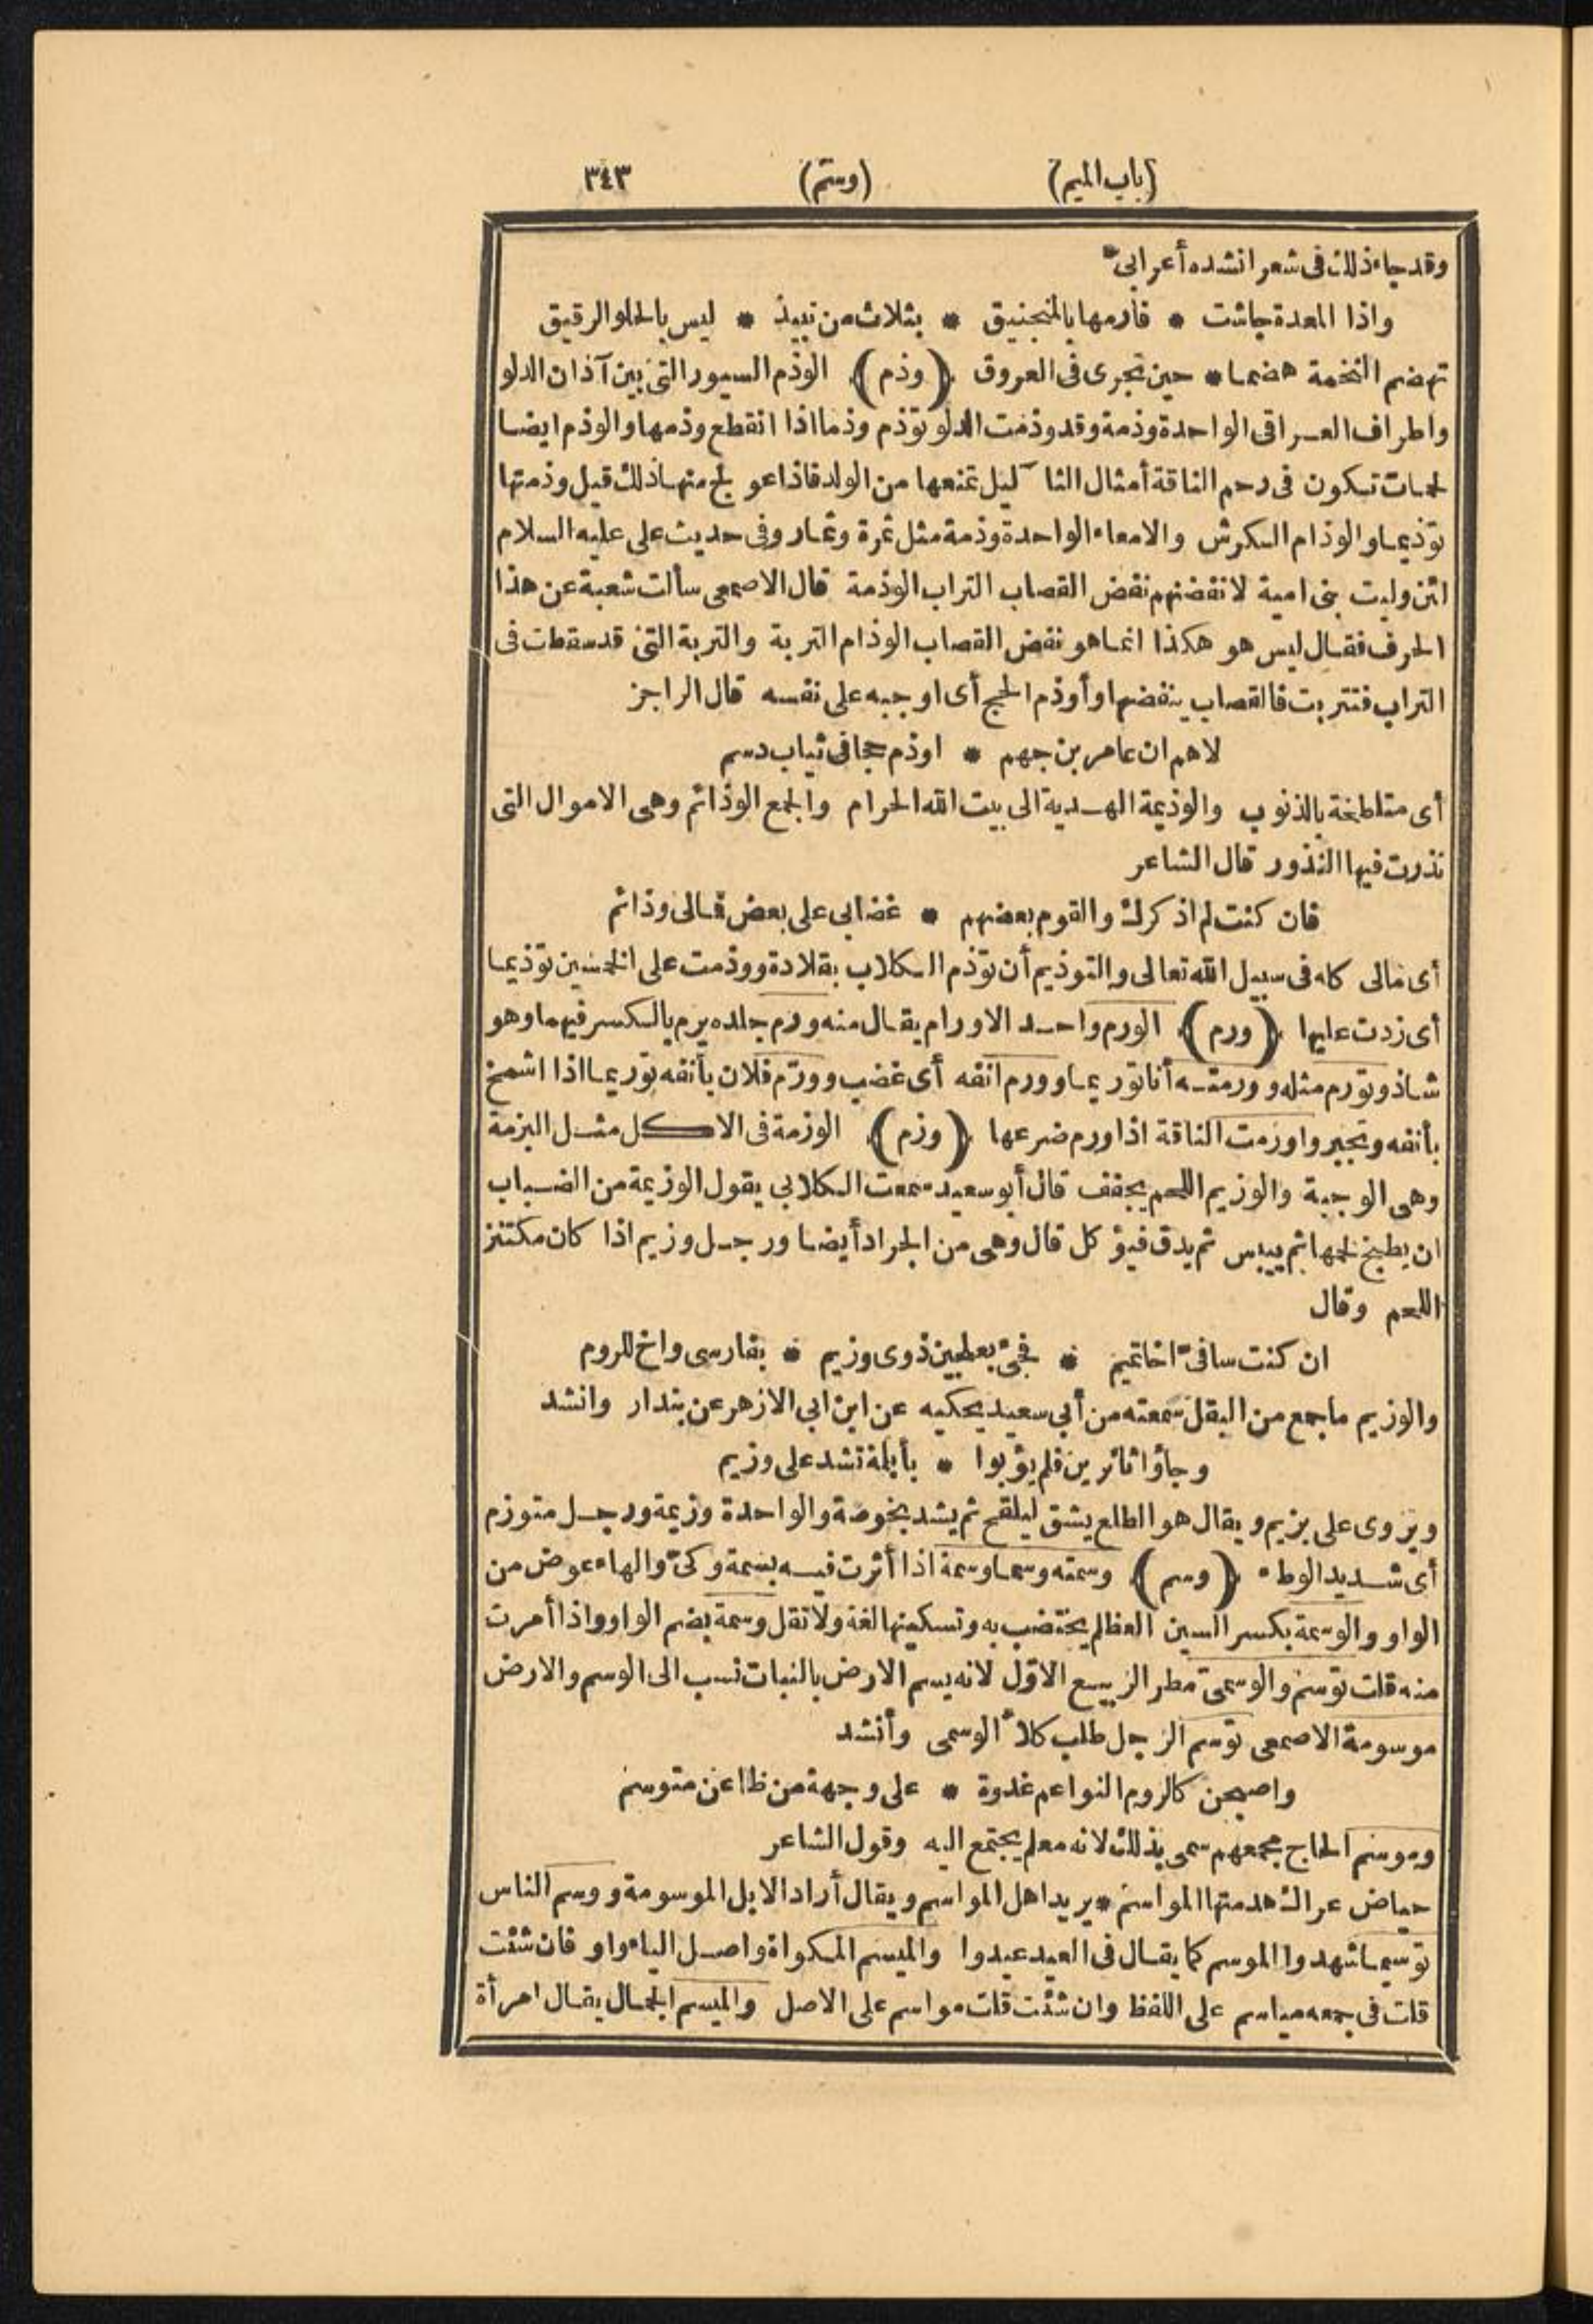 (باب الميم) (وسم) ٣٤٣
وقد جاء ذلك فى شعر انشده أعرابى
واذا المعدة جاشت * فارمها بالمنجنيق * بثلاث من نبيذ * ليس بالحلو الرقيق
تهضم التخمة هضما * حين تجرى فى العروق (وذم) الوذم السيور التى بين آذان الدلو
واطراف العراقى الواحدة وذمة وقد وذمت الدلو توذم وذما اذا انقطع وذمها والوذم ايضا
لحمات تكون فى رحم الناقة أمثال الثآ ليل تمنعها من الولد فاذا عو لج منها ذلك قيل وذمتها
توذيما والوذام الكرش والامعاء الواحدة وذمة مثل ثمرة وثمار وفى حديث على عليه السلام
لئن وليت بنى امية لانفضنهم نفض القصاب التراب الوذمة قال الاصمعى سألت شعبة عن هذا
الحرف فقال ليس هو هكذا انما هو نفض القصاب الوذام التربة والتربة التى قد سقطت فى
التراب فتتربت فالقصاب ينفضها وأوذم الحج أى اوجبه على نفسه قال الراجز
لاهم ان عامر بن جهم * اوذم حجا فى ثياب دسم
أى متلطخة بالذنوب والوذيمة الهدية الى بيت الله الحرام والجمع الوذائم وهى الاموال التى
نذرت فيها النذور قال الشاعر
فان كنت لم اذكرك والقوم بعضهم * غضابى على بعض فمالى وذائم
أى مالى كله فى سبيل الله تعالى والتوذيم أن توذم الكلاب بقلادة ووذمت على الخمسين توذيما
أى زدت عليها (ورم) الورم واحد الاورام يقال منه ورم جلده يرم بالكسر فيهما وهو
شاذ وتورم مثله وورمته أنا توريما وورم انفه أى غضب وورّم فلان بأنفه توريما اذا اشمخ
بأنفه وتجبر واورمت الناقة اذا ورم ضرعها (وزم) الوزمة فى الاكل مثل البزمة
وهى الوجبة والوزيم اللحم يجفف قال أبو سعيد سمعت الكلابى يقول الوزيمة من الضباب
ان يطبخ لحمها ثم ييبس ثم يدق فيؤكل قال وهى من الجراد أيضا ورجل وزيم اذا كان مكتنز
اللحم وقال
ان كنت ساقىّ اخا تميم * فجئ بعلجين ذوى وزيم * بفارسى واخ للروم
والوزيم ما جمع من البقل سمعته من أبى سعيد يحكيه عن ابن ابى الازهر عن بندار وانشد
وجاؤا ثائرين فلم يؤبوا * بأبلمة تشد على وزيم
ويروى على بزيم ويقال هو الطلع يشق ليلقح ثم يشد بخوصة والواحدة وزيمة ورجل متوزم
أى شديد الوطء (وسم) وسمته وسما وسمة اذا أثرت فيه بسمة وكىّ والهاء عوض من
الواو والوسمة بكسر السين العظلم يختضب به وتسكينها لغة ولا تقل وسمة بضم الواو واذا أمرت
منه قلت توسم والوسمىّ مطر الربيع الاوّل لانه يسم الارض بالنبات نسب الى الوسم والارض
موسومة الاصمعى توسم الرجل طلب كلأ الوسمى وأنشد
واصبحن كالدوم النواعم غدوة * على وجهة من ظاعن متوسم
وموسم الحاج مجمعهم سمى بذلك لانه معلم يجتمع اليه وقول الشاعر
حياض عراك هدمتها المواسم * يريد اهل المواسم ويقال أراد الابل الموسومة ووسم الناس
توسيما شهدوا الموسم كما يقال فى العيد عيدوا والميسم المكواة واصل الياء واو فان شئت
قلت فى جمعه مياسم على اللفظ وان شئت قلت مواسم على الاصل والميسم الجمال يقال امرأة